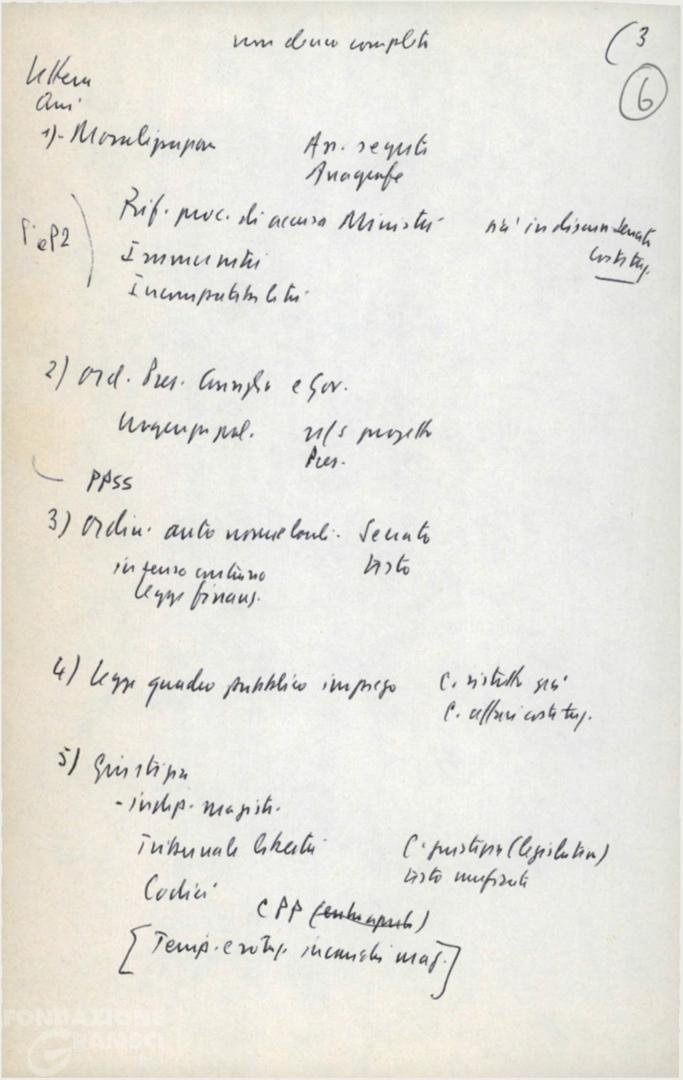 non elenco completo
(3
6
lettera
Oni
1)- Moralizzazione
An. segreti
Anagrafe
Rif. proc. di accusa Ministri già in discuss. Senato
P2 costituz.
Immunità
Incompatibilità
2) Ord. Pres. Consiglio e Gov.
progetto
Pres.
PPSS
3) Ordin. auto nomie locali. Senato
in senso testo
legge finanz.
4) legge quadro pubblico impiego C. ristretto già
C. affari costituz.
5) Giustizia
- indip. magistr.
Tribunale libertà C. giustizia (legislativa)
Codici testo
CPP
[Temp. e rotaz. incarichi mag.]
FONDAZIONE
GRAMSCI